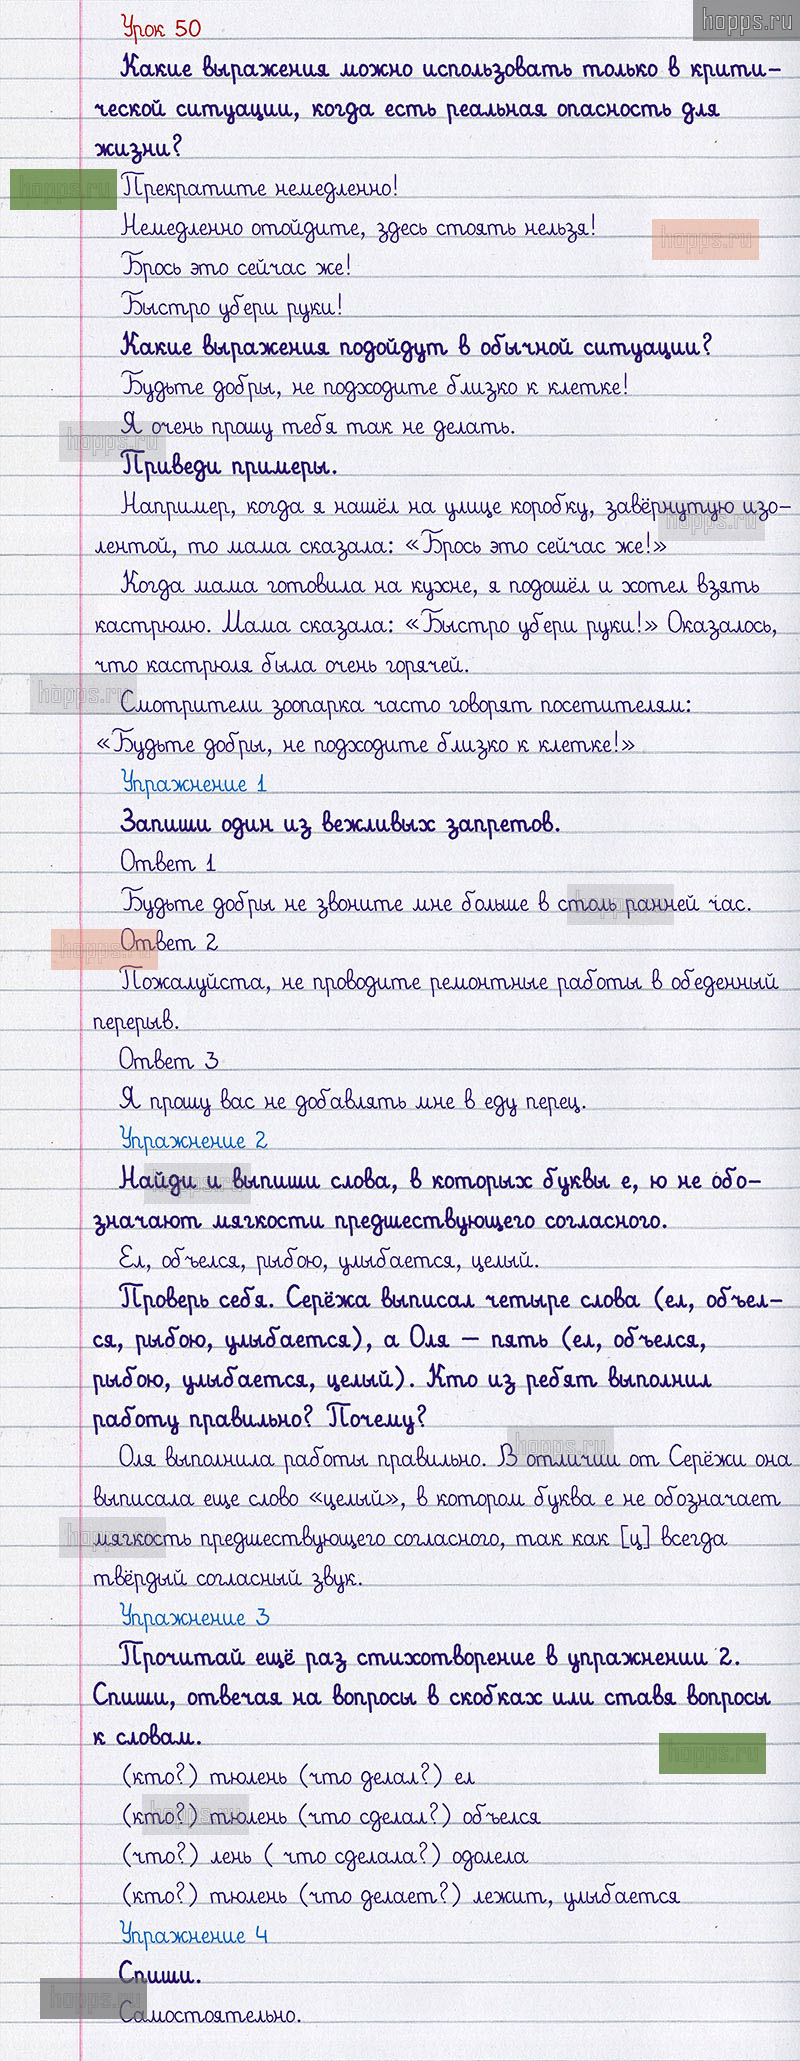 hopps.ru
Урок 50
Какие выражения можно использовать только в крити-
ческой ситуации, когда есть реальная опасность для
жизни?
hopps.ru
Прекратите немедленно!
Немедленно отойдите, здесь стоять нельзя!
hopps.ru
Брось это сейчас же!
Быстро убери руки!
Какие выражения подойдут в обычной ситуации?
Будьте добры, не подходите близко к клетке!
Я очень прошу тебя так не делать.
hopps.ru
Приведи примеры.
Например, когда я нашёл на улице коробку, завёрнутую изо-
hopps.ru
лентой, то мама сказала: «Брось это сейчас же!»
Когда мама готовила на кухне, я подошёл и хотел взять
кастрюлю. Мама сказала: «Быстро убери руки!» Оказалось,
что кастрюля была очень горячей.
hopps.ru
Смотрители зоопарка часто говорят посетителям:
«Будьте добры, не подходите близко к клетке!»
Упражнение 1
Запиши один из вежливых запретов.
Ответ 1
Будьте добры не звоните мне больше в столь ранней час.
hopps.ru
Ответ 2
hopps.ru
Пожалуйста, не проводите ремонтные работы в обеденный
перерыв.
Ответ 3
Я прошу вас не добавлять мне в еду перец.
Упражнение 2
Найди и выпиши слова, в которых буквы е, ю не обо-
hopps.ru
значают мягкости предшествующего согласного.
Ел, объелся, рыбою, улыбается, целый.
Проверь себя. Серёжа выписал четыре слова (ел, объел-
ся, рыбою, улыбается), а Оля – пять (ел, объелся,
рыбою, улыбается, целый). Кто из ребят выполнил
работу правильно? Почему?
hopps.ru
Оля выполнила работы правильно. В отличии от Серёжи она
выписала еще слово «целый», в котором буква е не обозначает
hopps.ru
мягкость предшествующего согласного, так как [ц] всегда
твёрдый согласный звук.
Упражнение 3
Прочитай ещё раз стихотворение в упражнении 2.
Спиши, отвечая на вопросы в скобках или ставя вопросы
к словам.
hopps.ru
(кто?) тюлень (что делал?) ел
(кто?) тюлень (что сделал?) объелся
hopps.ru
(что?) лень ( что сделала?) одолела
(кто?) тюлень (что делает?) лежит, улыбается
Упражнение 4
Спиши.
hopps.ru
Самостоятельно.